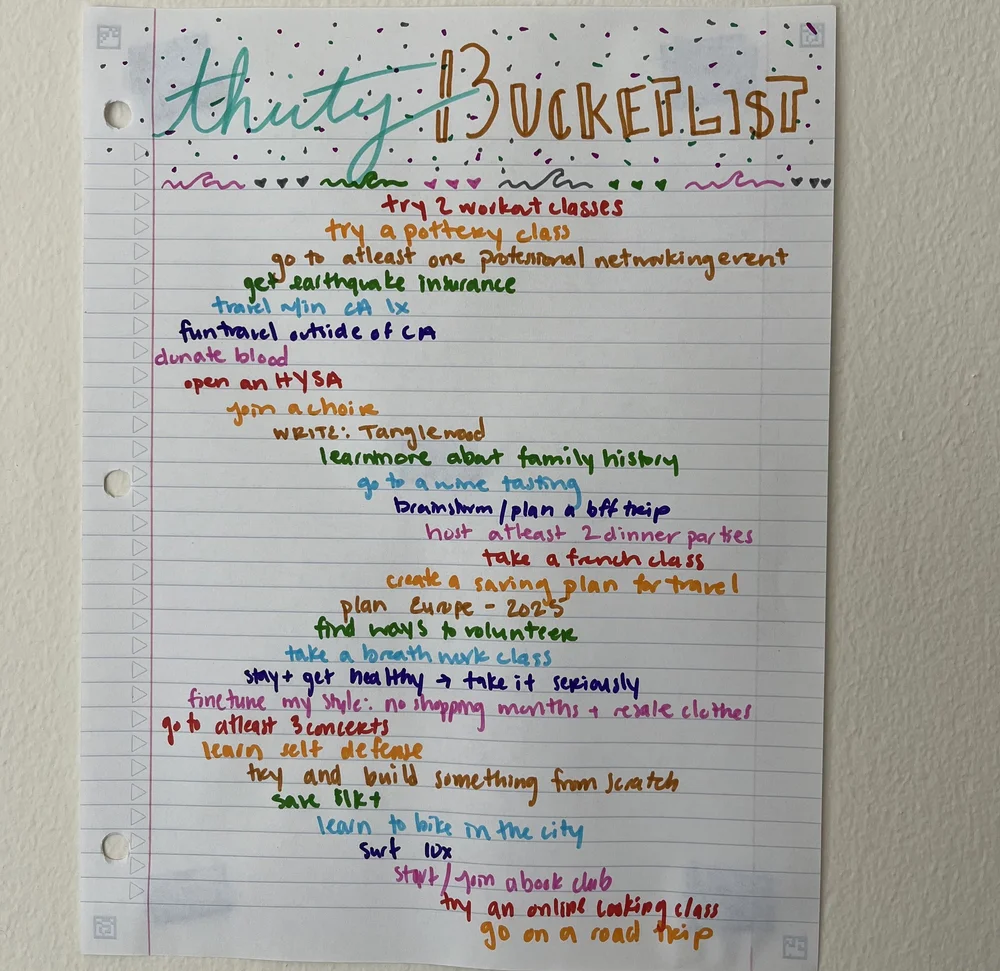 thirty BUCKETLIST
try 2 workout classes
try a pottery class
go to atleast one professional networking event
get earthquake insurance
travel w/in CA 1x
fun travel outside of CA
donate blood
open an HYSA
join a choir
WRITE: Tanglewood
learn more about family history
go to a wine tasting
brainstorm / plan a bff trip
host atleast 2 dinner parties
take a french class
create a saving plan for travel
plan Europe - 2025
find ways to volunteer
take a breath work class
stay + get healthy → take it seriously
finetune my style: no shopping months + resale clothes
go to atleast 3 concerts
learn self defense
try and build something from scratch
save
learn to bike in the city
surf 10x
start/join a book club
try an online cooking class
go on a road trip